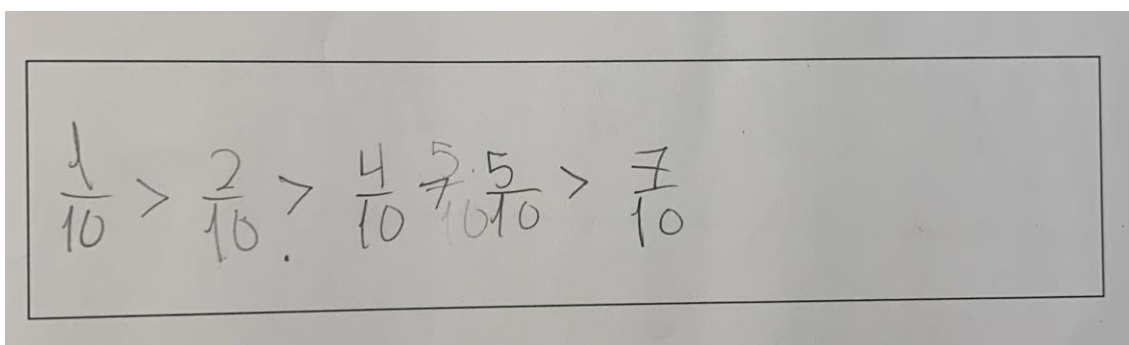 1/10 > 2/10 > 4/10 > 5/10 > 7/10